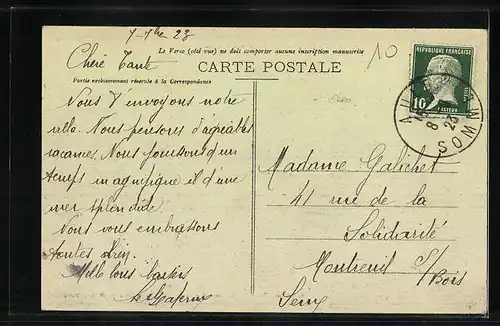 7-7bre 23
10
Le Verso (côté vue) ne doit comporter aucune inscription manuscrite
Chère Tante
CARTE POSTALE
Partie exclusivement réservée à la Correspondance
REPUBLIQUE FRANÇAISE
10
PASTEUR
AU
8
23
SOMM
Nous t'envoyons notre
villo. Nous pensons d'agréables
vacances. Nous jouissons d'un
temps magnifique et d'une
mer splendide.
Nous vous embrassons
toutes deux
Mille bons baisers
Madame Galichet
41 rue de la
Solidarité
Montreuil s/Bois
Seine